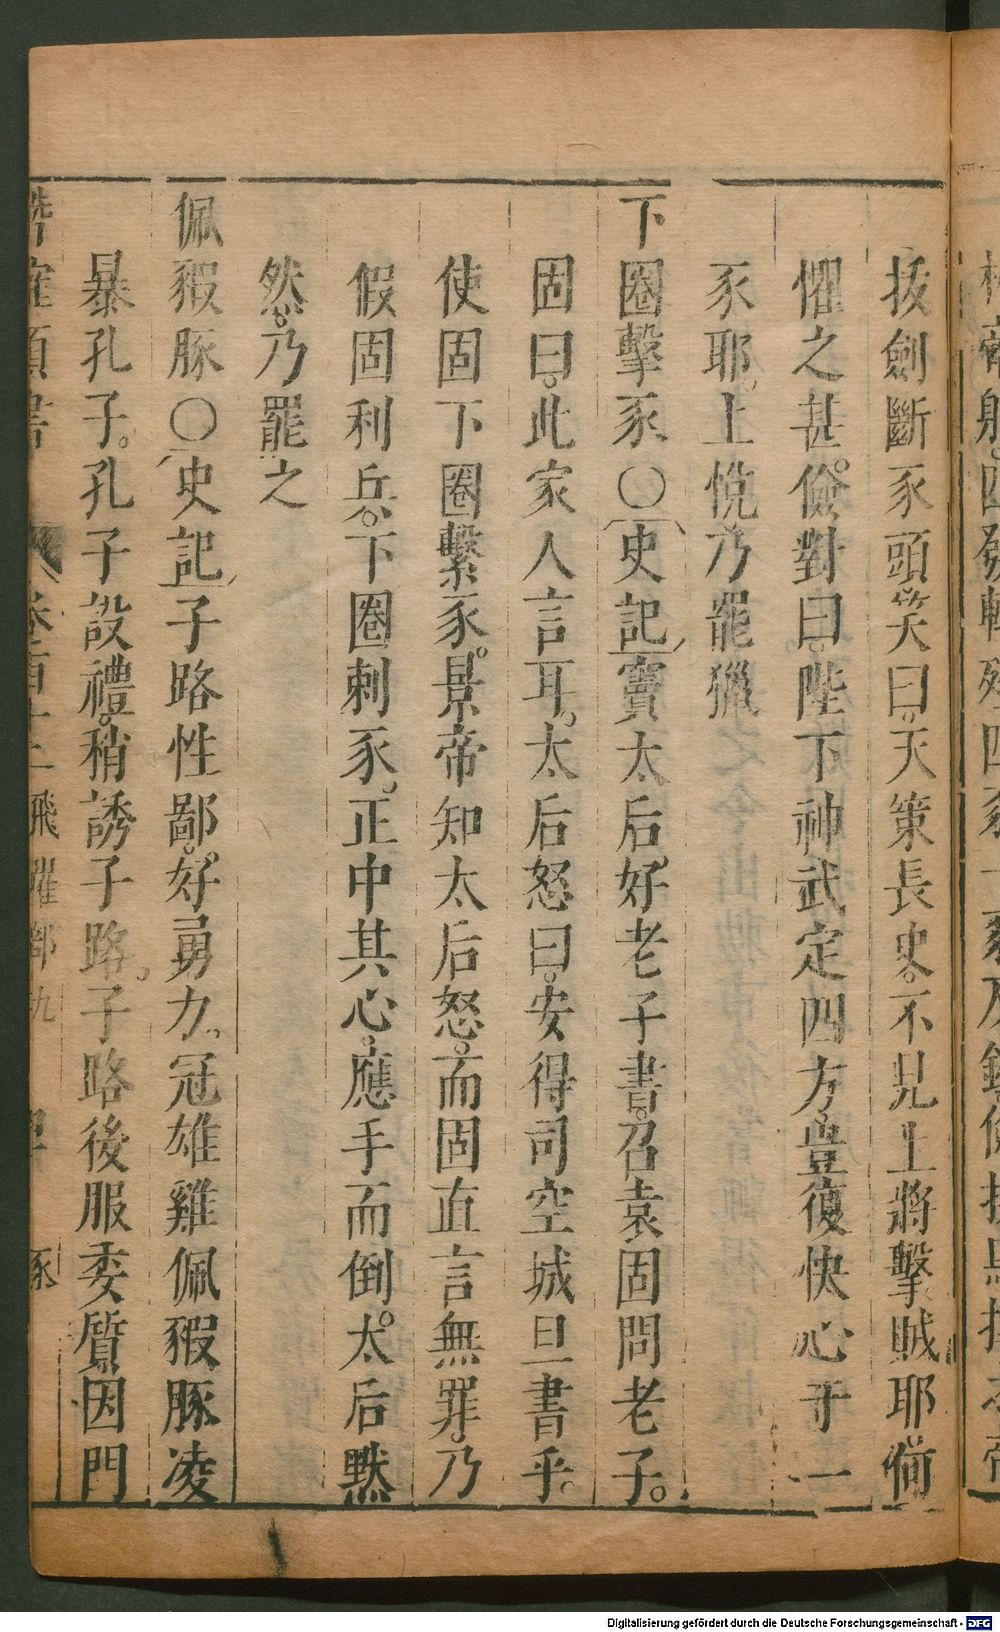 拔劍斷豕頭笑曰。天策長史。不見上將擊賊耶。何
懼之甚。儉對曰。陛下神武定四方。豈復快心于一
豕耶。上悅乃罷獵
下圈擊豕〇史記竇太后。好老子書。召袁固問老子。
固曰。此家人言耳。太后怒曰。安得司空城旦書乎。
使固下圈擊豕。景帝知太后怒。而固直言無罪。乃
假固利兵。下圈刺豕。正中其心。應手而倒。太后默
然。乃罷之
佩豭豚〇史記子路性鄙。好勇力。冠雄雞佩豭豚凌
暴孔子。孔子設禮。稍誘子路。子路後服委質因門
飛躍部 豕
Digitalisierung gefördert durch die Deutsche Forschungsgemeinschaft - DFG